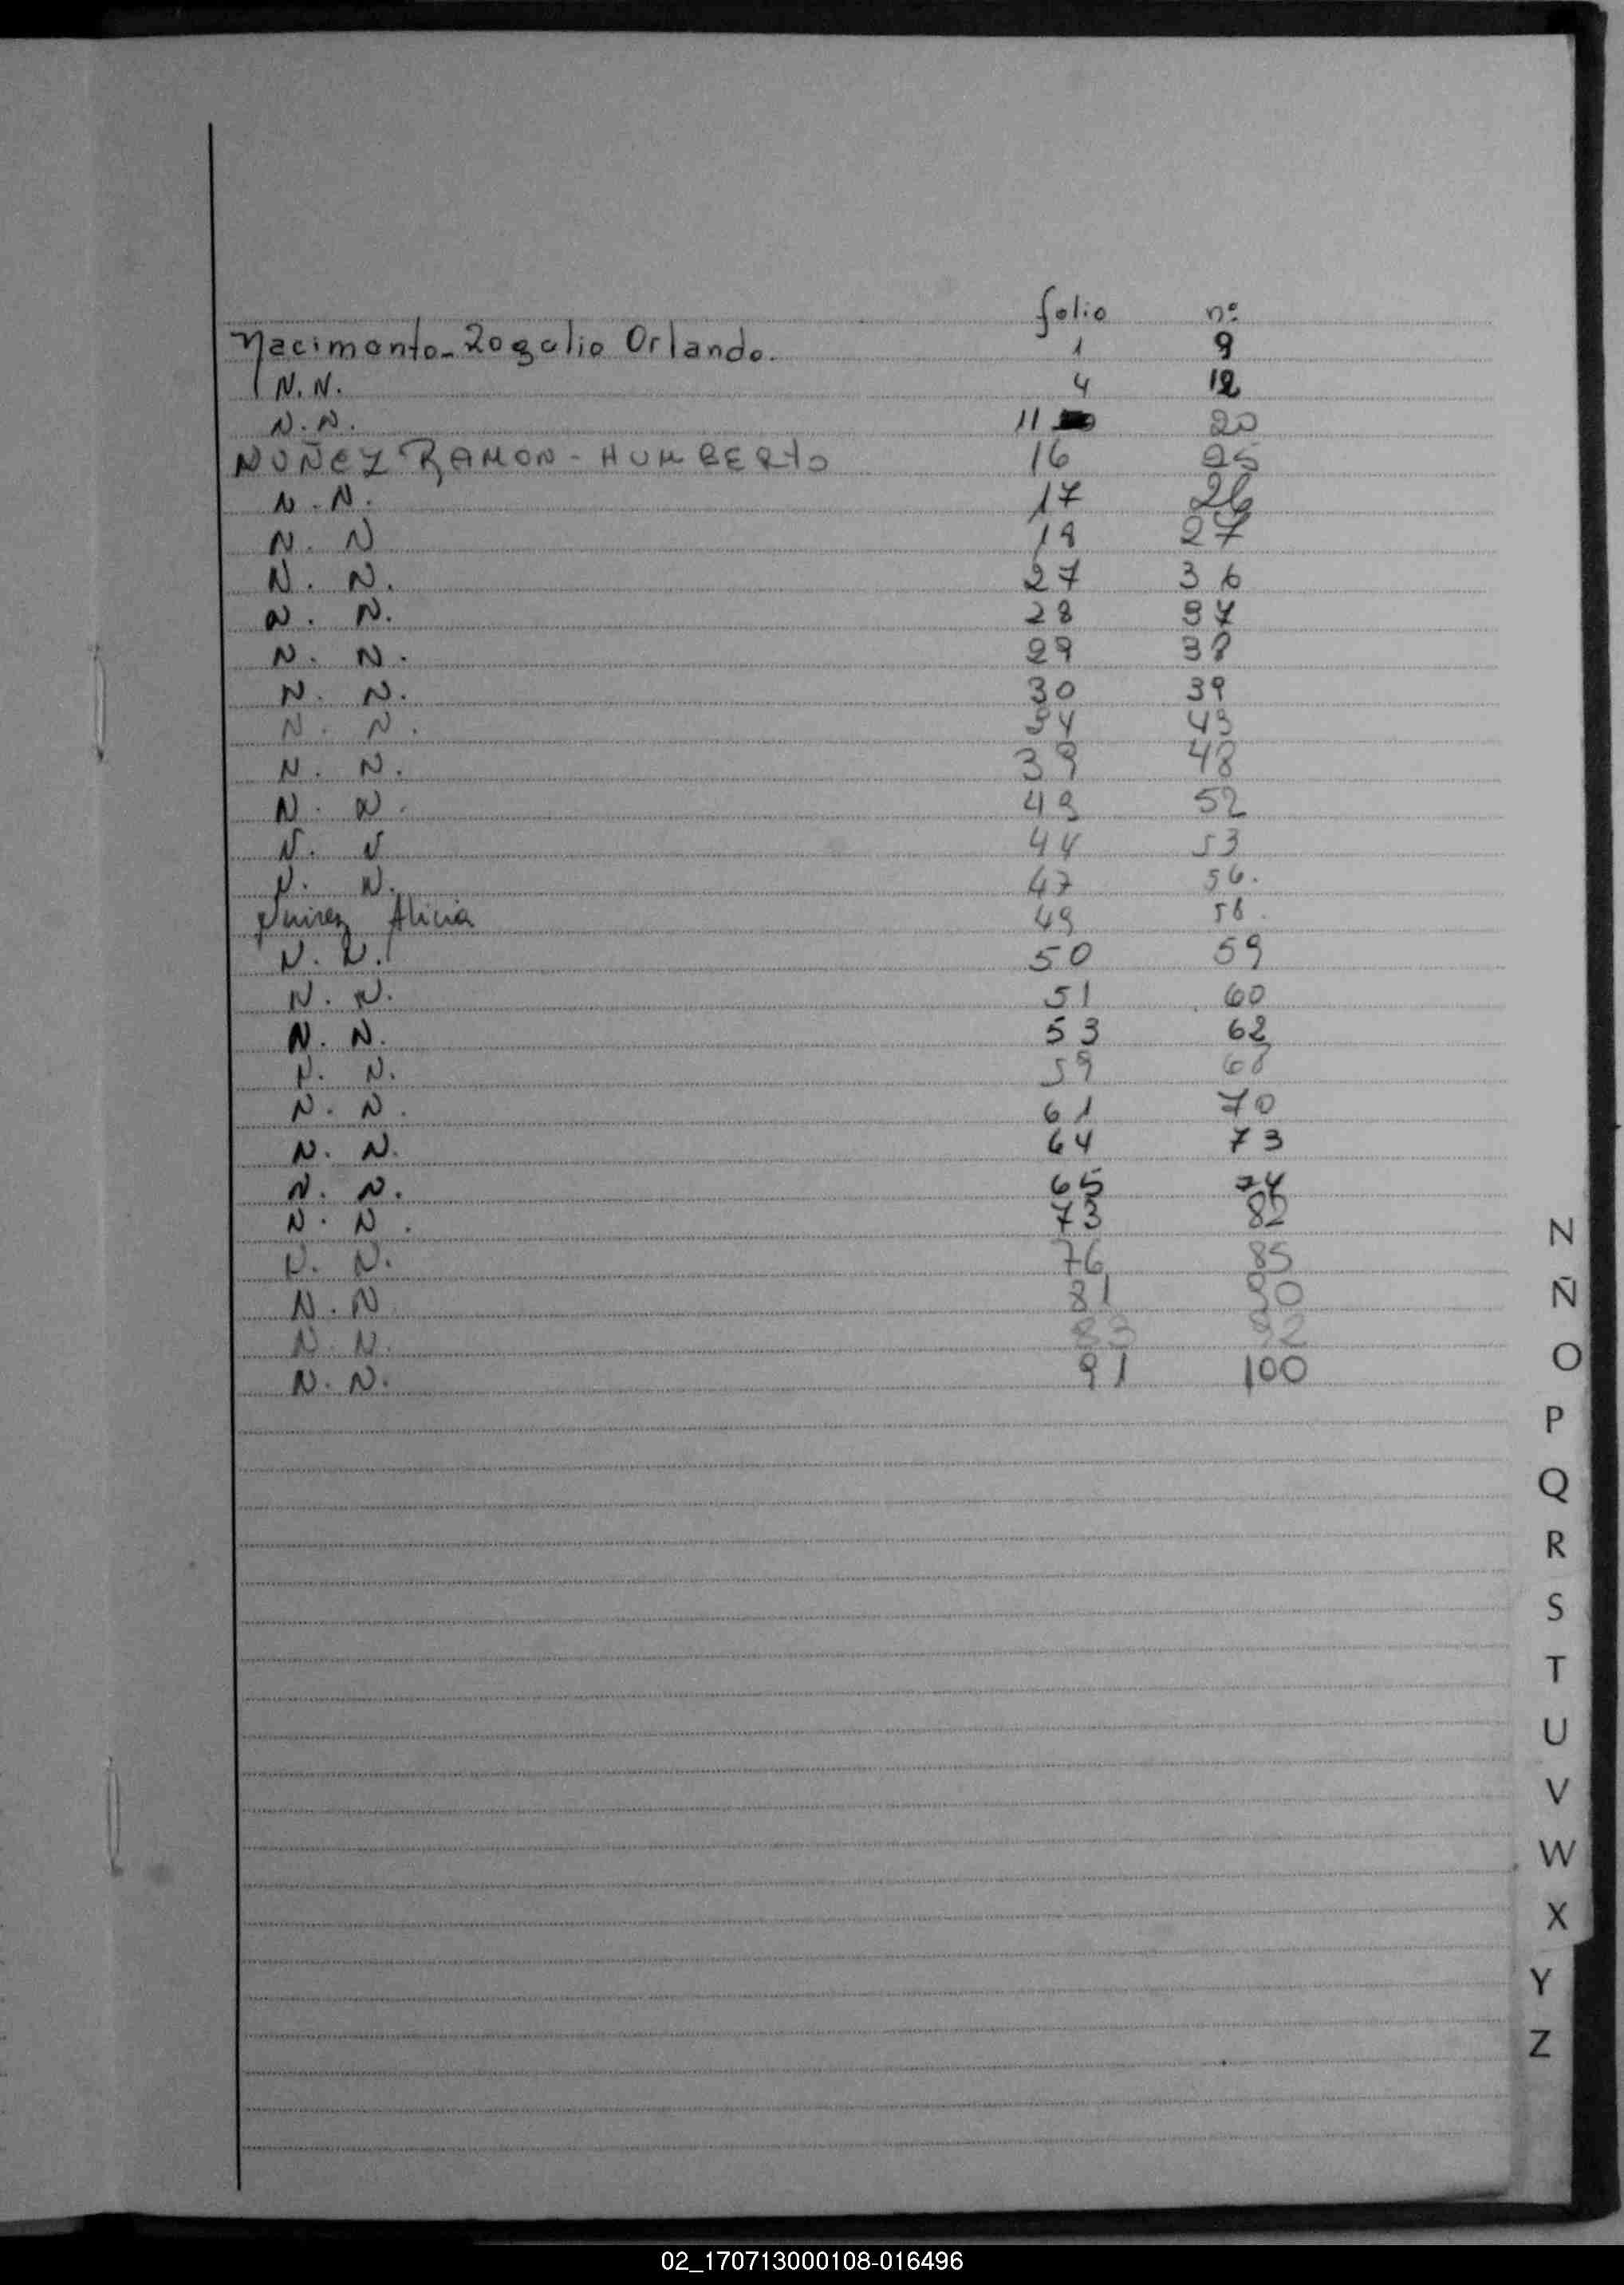 folio nº
Nacimento - Rogelio Orlando. 1 9
N.N. 4 12
N.N. 11 20
NUÑEZ RAMON - HUMBERTO 16 25
N.N. 17 26
N. N 18 27
N. N. 27 36
N. N. 28 37
N. N. 29 38
N. N. 30 39
N. N. 34 43
N. N. 39 48
N. N. 43 52
N. N 44 53
N. N. 47 56.
Alicia 49 58.
N. N. 50 59
N. N. 51 60
N. N. 53 62
N. N. 59 68
N. N. 61 70
N. N. 64 73
N. N. 65 74
N. N. 73 82
N. N. 76 85
N. N 81 90
N. N. 83 92
N. N. 91 100
N
Ñ
O
P
Q
R
S
T
U
V
W
X
Y
Z
02_170713000108-016496